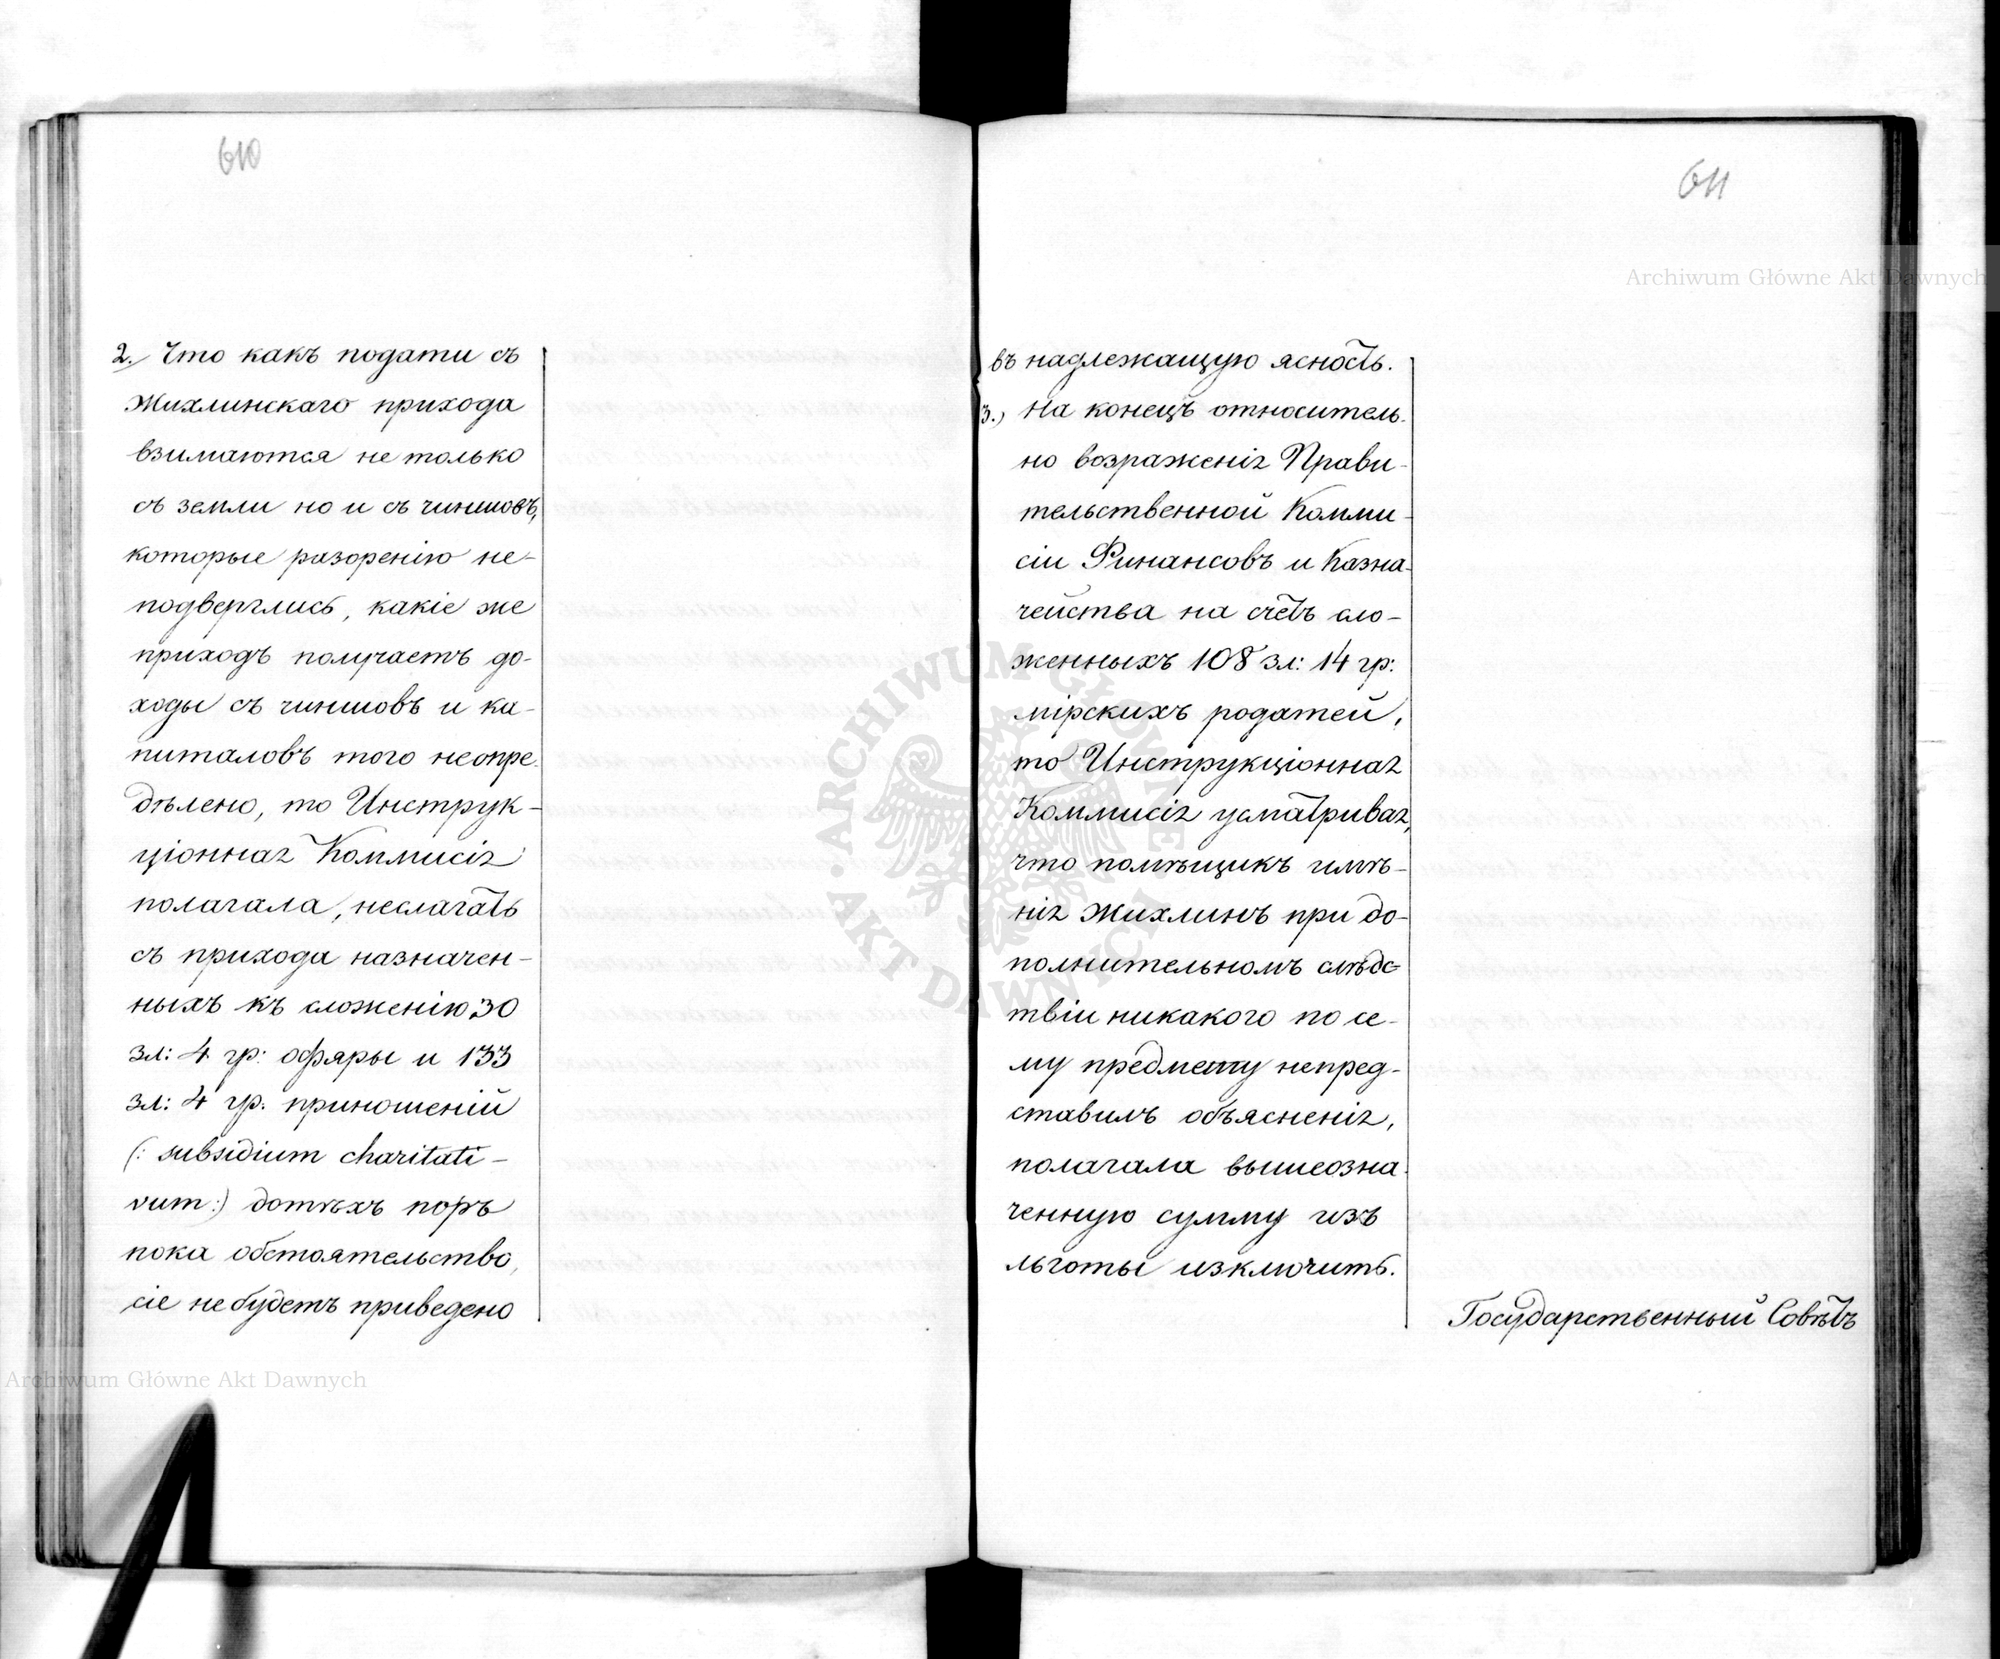 610
2. Что какъ подати съ
Жихлинскаго прихода
взимаются не только
съ земли но и съ чиншовъ,
которые разоренію не-
подверглись, какіе же
приходъ получаетъ до-
ходы съ чиншовъ и ка-
питаловъ того неопре-
дѣлено, то Инструк-
ціонная Коммисія
полагала, неслагать
съ прихода назначен-
ныхъ къ сложенію 30
зл: 4 гр: офяры и 133
зл: 4 гр. приношеній
(: subsidium charitati-
vum:) дотѣхъ поръ
пока обстоятельство
сіе не будетъ приведено
611
въ надлежащую ясность.
3.) На конецъ относитель-
но возраженія Прави-
тельственной Комми-
сіи Финансовъ и Казна-
чейства на счетъ сло-
женныхъ 108 зл: 14 гр:
мірскихъ родатей,
то Инструкціонная
Коммисія усматривая,
что помѣщикъ имѣ-
нія Жихлинъ при до-
полнительномъ слѣдс-
твіи никакого по се-
му предмету непред-
ставилъ объясненія,
полагала вышеозна-
ченную сумму изъ
льготы изключить.
Государственный Совѣтъ
Archiwum Główne Akt Dawnych
Archiwum Główne Akt Dawnych
ARCHIWUM GŁÓWNE AKT DAWNYCH